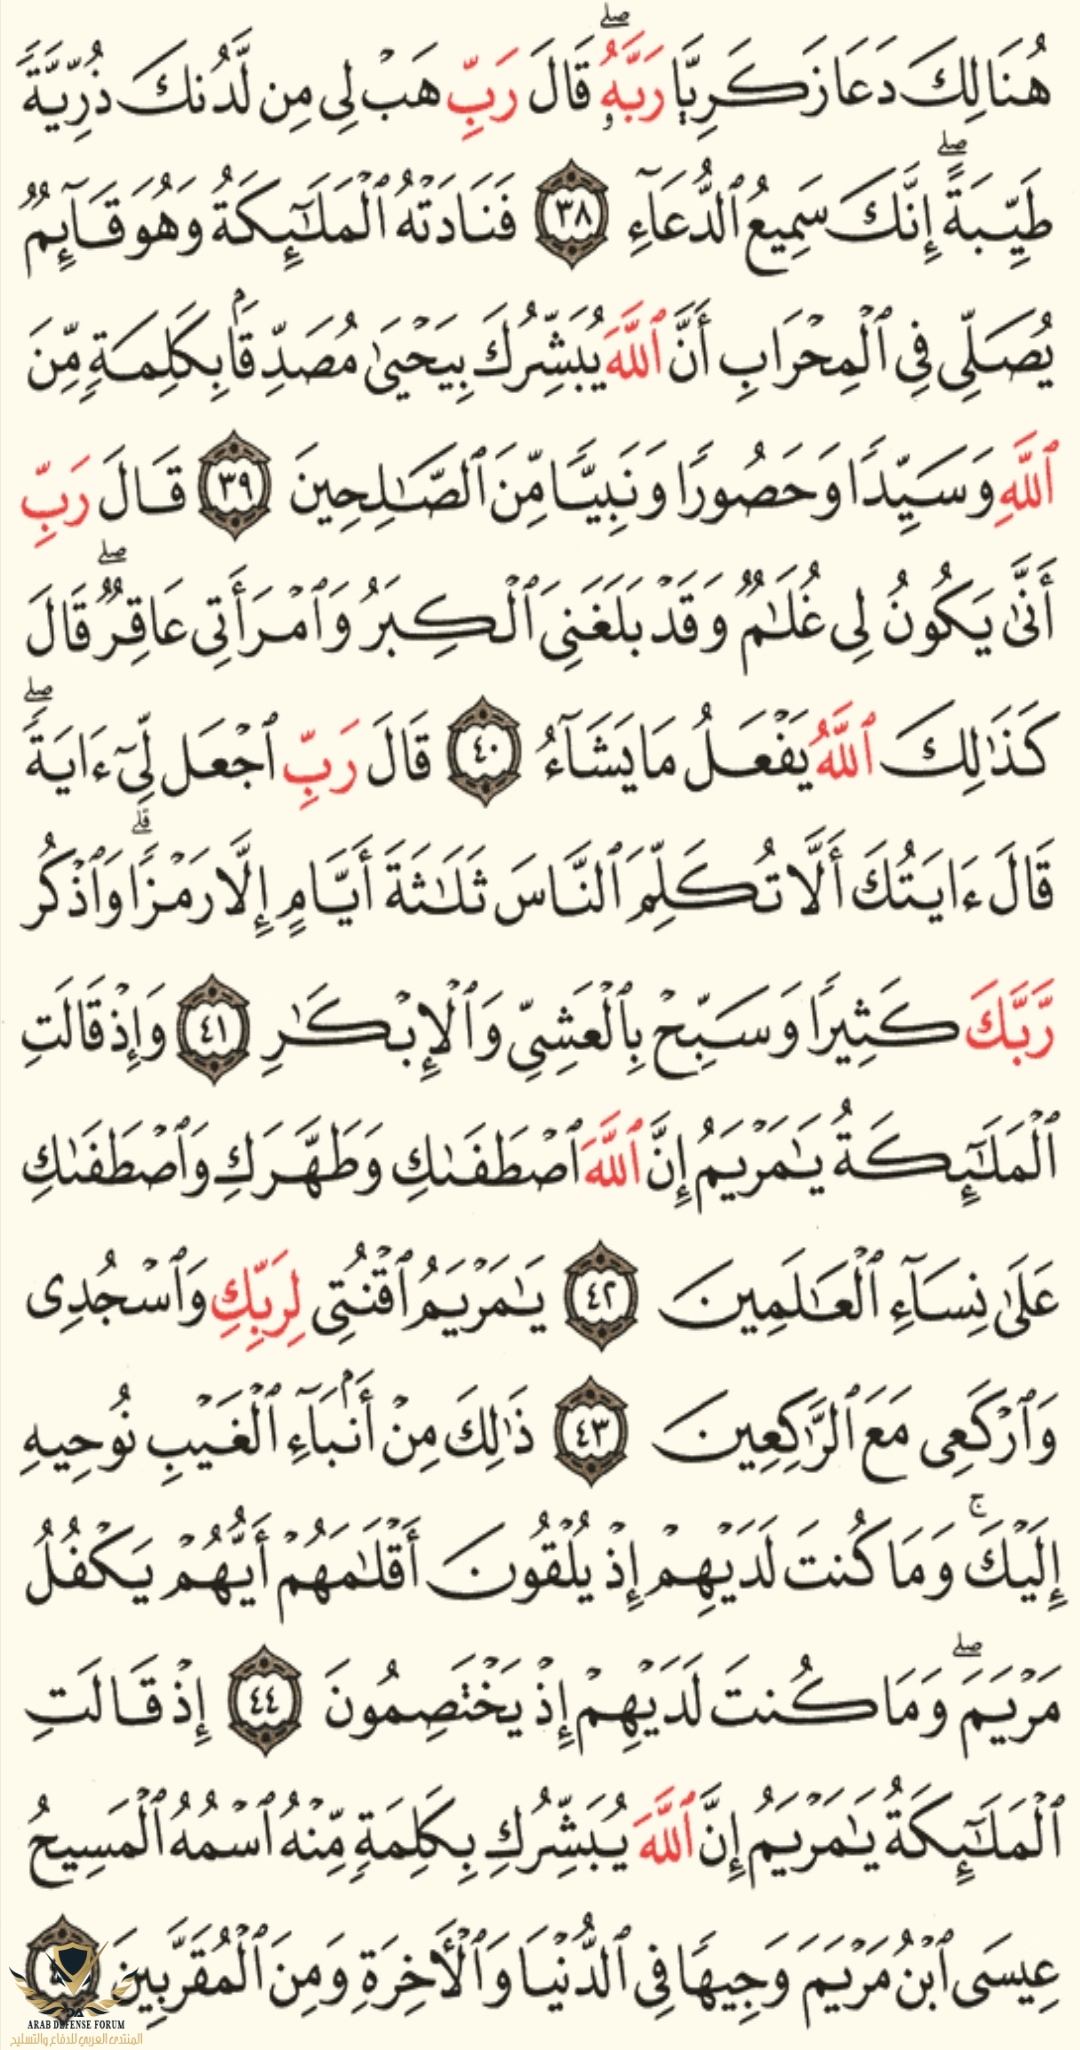 هُنَالِكَ دَعَا زَكَرِيَّا رَبَّهُۥ ۖ قَالَ رَبِّ هَبْ لِى مِن لَّدُنكَ ذُرِّيَّةً
طَيِّبَةً ۖ إِنَّكَ سَمِيعُ ٱلدُّعَآءِ ﴿٣٨﴾ فَنَادَتْهُ ٱلْمَلَـٰٓئِكَةُ وَهُوَ قَآئِمٌ
يُصَلِّى فِى ٱلْمِحْرَابِ أَنَّ ٱللَّهَ يُبَشِّرُكَ بِيَحْيَىٰ مُصَدِّقًۢا بِكَلِمَةٍ مِّنَ
ٱللَّهِ وَسَيِّدًا وَحَصُورًا وَنَبِيًّا مِّنَ ٱلصَّـٰلِحِينَ ﴿٣٩﴾ قَالَ رَبِّ
أَنَّىٰ يَكُونُ لِى غُلَـٰمٌ وَقَدْ بَلَغَنِىَ ٱلْكِبَرُ وَٱمْرَأَتِى عَاقِرٌ ۖ قَالَ
كَذَٰلِكَ ٱللَّهُ يَفْعَلُ مَا يَشَآءُ ﴿٤٠﴾ قَالَ رَبِّ ٱجْعَل لِّىٓ ءَايَةً ۖ
قَالَ ءَايَتُكَ أَلَّا تُكَلِّمَ ٱلنَّاسَ ثَلَـٰثَةَ أَيَّامٍ إِلَّا رَمْزًا ۗ وَٱذْكُر
رَّبَّكَ كَثِيرًا وَسَبِّحْ بِٱلْعَشِىِّ وَٱلْإِبْكَـٰرِ ﴿٤١﴾ وَإِذْ قَالَتِ
ٱلْمَلَـٰٓئِكَةُ يَـٰمَرْيَمُ إِنَّ ٱللَّهَ ٱصْطَفَىٰكِ وَطَهَّرَكِ وَٱصْطَفَىٰكِ
عَلَىٰ نِسَآءِ ٱلْعَـٰلَمِينَ ﴿٤٢﴾ يَـٰمَرْيَمُ ٱقْنُتِى لِرَبِّكِ وَٱسْجُدِى
وَٱرْكَعِى مَعَ ٱلرَّٰكِعِينَ ﴿٤٣﴾ ذَٰلِكَ مِنْ أَنۢبَآءِ ٱلْغَيْبِ نُوحِيهِ
إِلَيْكَ ۚ وَمَا كُنتَ لَدَيْهِمْ إِذْ يُلْقُونَ أَقْلَـٰمَهُمْ أَيُّهُمْ يَكْفُلُ
مَرْيَمَ ۖ وَمَا كُنتَ لَدَيْهِمْ إِذْ يَخْتَصِمُونَ ﴿٤٤﴾ إِذْ قَالَتِ
ٱلْمَلَـٰٓئِكَةُ يَـٰمَرْيَمُ إِنَّ ٱللَّهَ يُبَشِّرُكِ بِكَلِمَةٍ مِّنْهُ ٱسْمُهُ ٱلْمَسِيحُ
عِيسَى ٱبْنُ مَرْيَمَ وَجِيهًا فِى ٱلدُّنْيَا وَٱلْـَٔاخِرَةِ وَمِنَ ٱلْمُقَرَّبِينَ
ARAB DEFENSE FORUM
المنتدى العربي للدفاع والتسليح